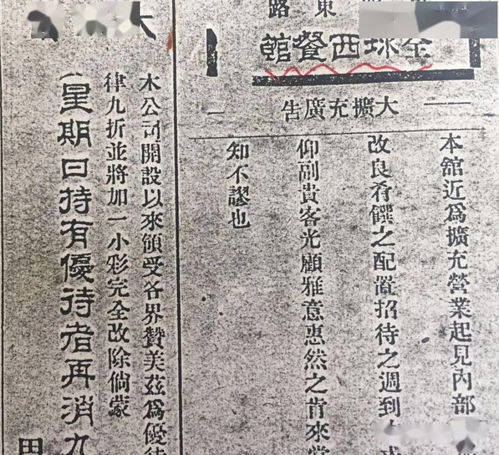 東
路
全球西餐館
大擴充廣告
本舘近爲擴充營業起見內部
改良肴饌之配置招待之週到
仰副貴客光顧雅意惠然之肯來當
知不謬也
木公司開設以來頒受各界贊美茲爲優待
律九折並將加一小彩完全改除倘蒙
星期日持有優待者再消九
田